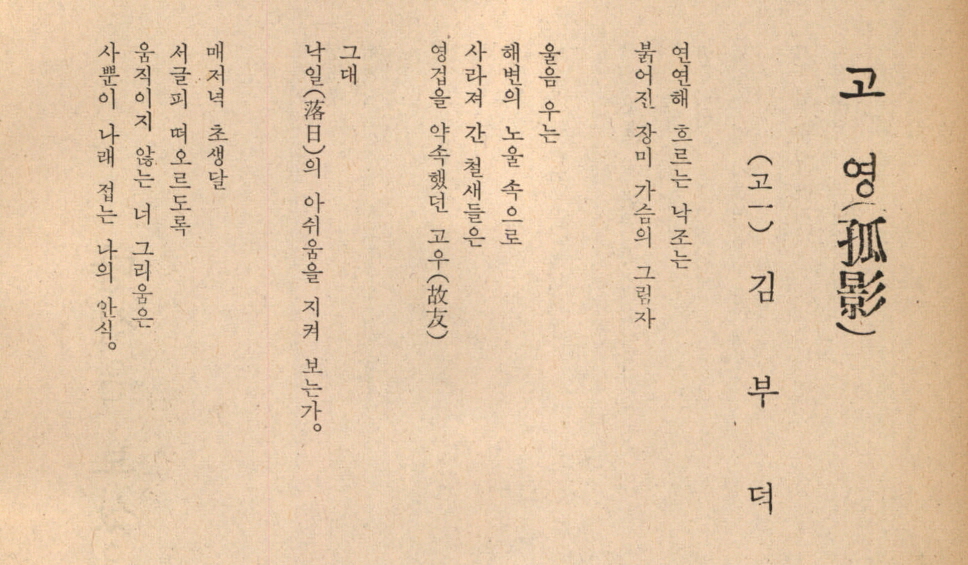 고 영(孤影)
(고一) 김 부 덕
연연해 흐르는 낙조는
붉어진 장미 가슴의 그림자
울음 우는
해변의 노울 속으로
사라져 간 철새들은
영겁을 약속했던 고우(故友)
그대
낙일(落日)의 아쉬움을 지켜 보는가。
매저녁 초생달
서글피 떠오르도록
움직이지 않는 너 그리움은
사뿐이 나래 접는 나의 안식。